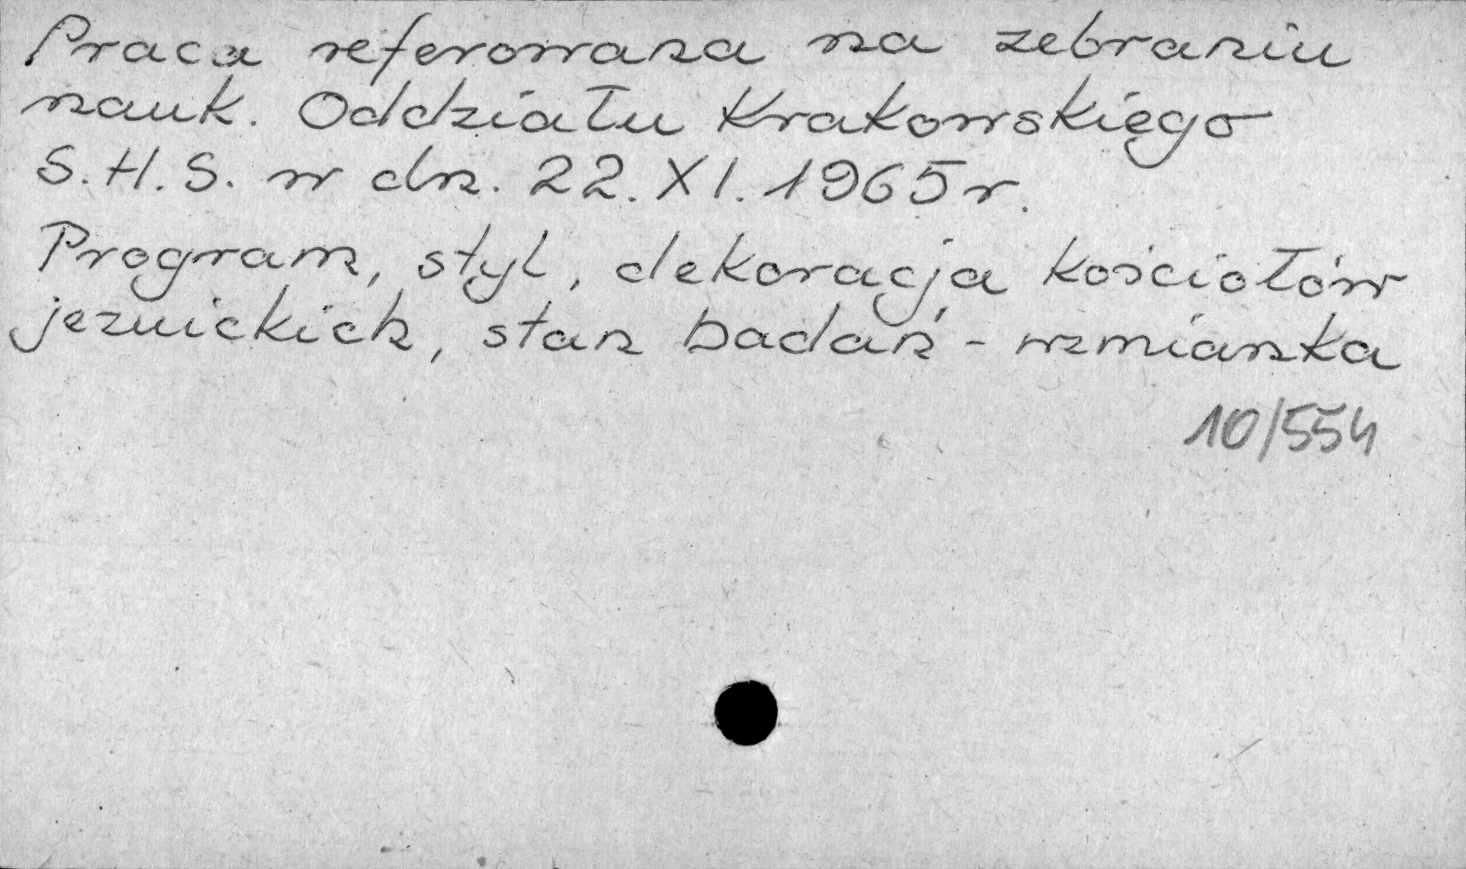 Praca referowana na zebraniu
nauk. Oddziału Krakowskiego
S.H.S. w dn. 22.XI.1965r.
Program, styl, dekoracja kościołów
jezuickich, stan badań - wzmianka
10/554